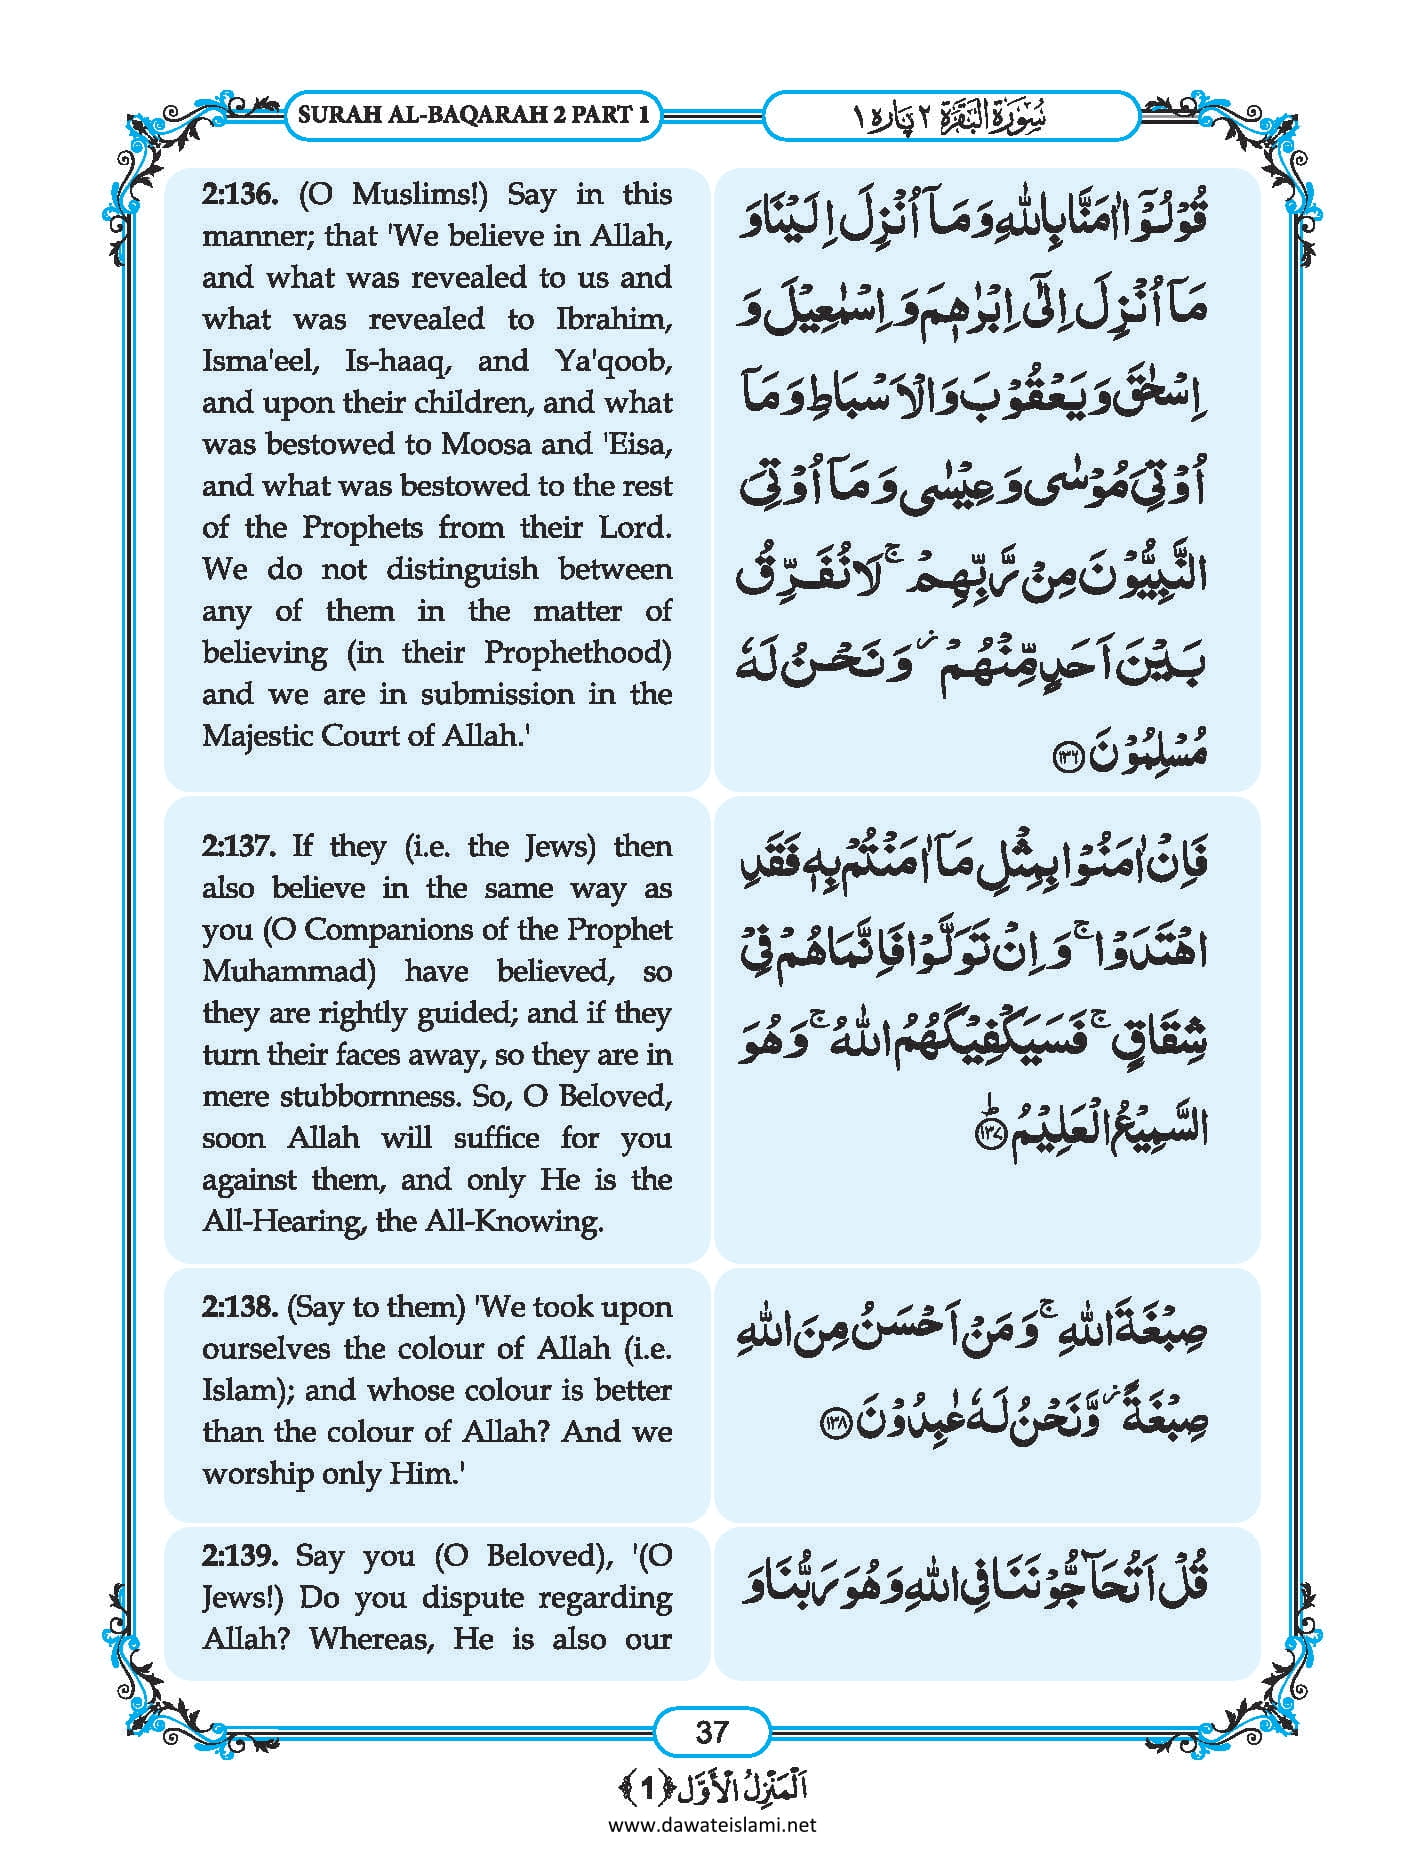 SURAH AL-BAQARAH 2 PART 1
سُوْرَةُ الْبَقَرَة ٢ پاره ١
2:136. (O Muslims!) Say in this
manner; that 'We believe in Allah,
and what was revealed to us and
what was revealed to Ibrahim,
Isma'eel, Is-haaq, and Ya'qoob,
and upon their children, and what
was bestowed to Moosa and 'Eisa,
and what was bestowed to the rest
of the Prophets from their Lord.
We do not distinguish between
any of them in the matter of
believing (in their Prophethood)
and we are in submission in the
Majestic Court of Allah.'
قُوْلُوْۤا اٰمَنَّا بِاللّٰهِ وَ مَاۤ اُنْزِلَ اِلَیْنَا وَ
مَاۤ اُنْزِلَ اِلٰۤى اِبْرٰهٖمَ وَ اِسْمٰعِیْلَ وَ
اِسْحٰقَ وَ یَعْقُوْبَ وَ الْاَسْبَاطِ وَ مَاۤ
اُوْتِیَ مُوْسٰى وَ عِیْسٰى وَ مَاۤ اُوْتِیَ
النَّبِیُّوْنَ مِنْ رَّبِّهِمْ ۚ لَا نُفَرِّقُ
بَیْنَ اَحَدٍ مِّنْهُمْ ؗ وَ نَحْنُ لَهٗ
مُسْلِمُوْنَ ﴿۱۳۶﴾
2:137. If they (i.e. the Jews) then
also believe in the same way as
you (O Companions of the Prophet
Muhammad) have believed, so
they are rightly guided; and if they
turn their faces away, so they are in
mere stubbornness. So, O Beloved,
soon Allah will suffice for you
against them, and only He is the
All-Hearing, the All-Knowing.
فَاِنْ اٰمَنُوْا بِمِثْلِ مَاۤ اٰمَنْتُمْ بِهٖ فَقَدِ
اهْتَدَوْا ۚ وَ اِنْ تَوَلَّوْا فَاِنَّمَا هُمْ فِیْ
شِقَاقٍ ۚ فَسَیَكْفِیْكَهُمُ اللّٰهُ ۚ وَ هُوَ
السَّمِیْعُ الْعَلِیْمُ ﴿۱۳۷﴾ؕ
2:138. (Say to them) 'We took upon
ourselves the colour of Allah (i.e.
Islam); and whose colour is better
than the colour of Allah? And we
worship only Him.'
صِبْغَةَ اللّٰهِ ۚ وَ مَنْ اَحْسَنُ مِنَ اللّٰهِ
صِبْغَةً ؗ وَّ نَحْنُ لَهٗ عٰبِدُوْنَ ﴿۱۳۸﴾
2:139. Say you (O Beloved), '(O
Jews!) Do you dispute regarding
Allah? Whereas, He is also our
قُلْ اَتُحَآجُّوْنَنَا فِی اللّٰهِ وَ هُوَ رَبُّنَا وَ
37
اَلْمَنْزِلُ الْاَوَّل ﴿1﴾
www.dawateislami.net